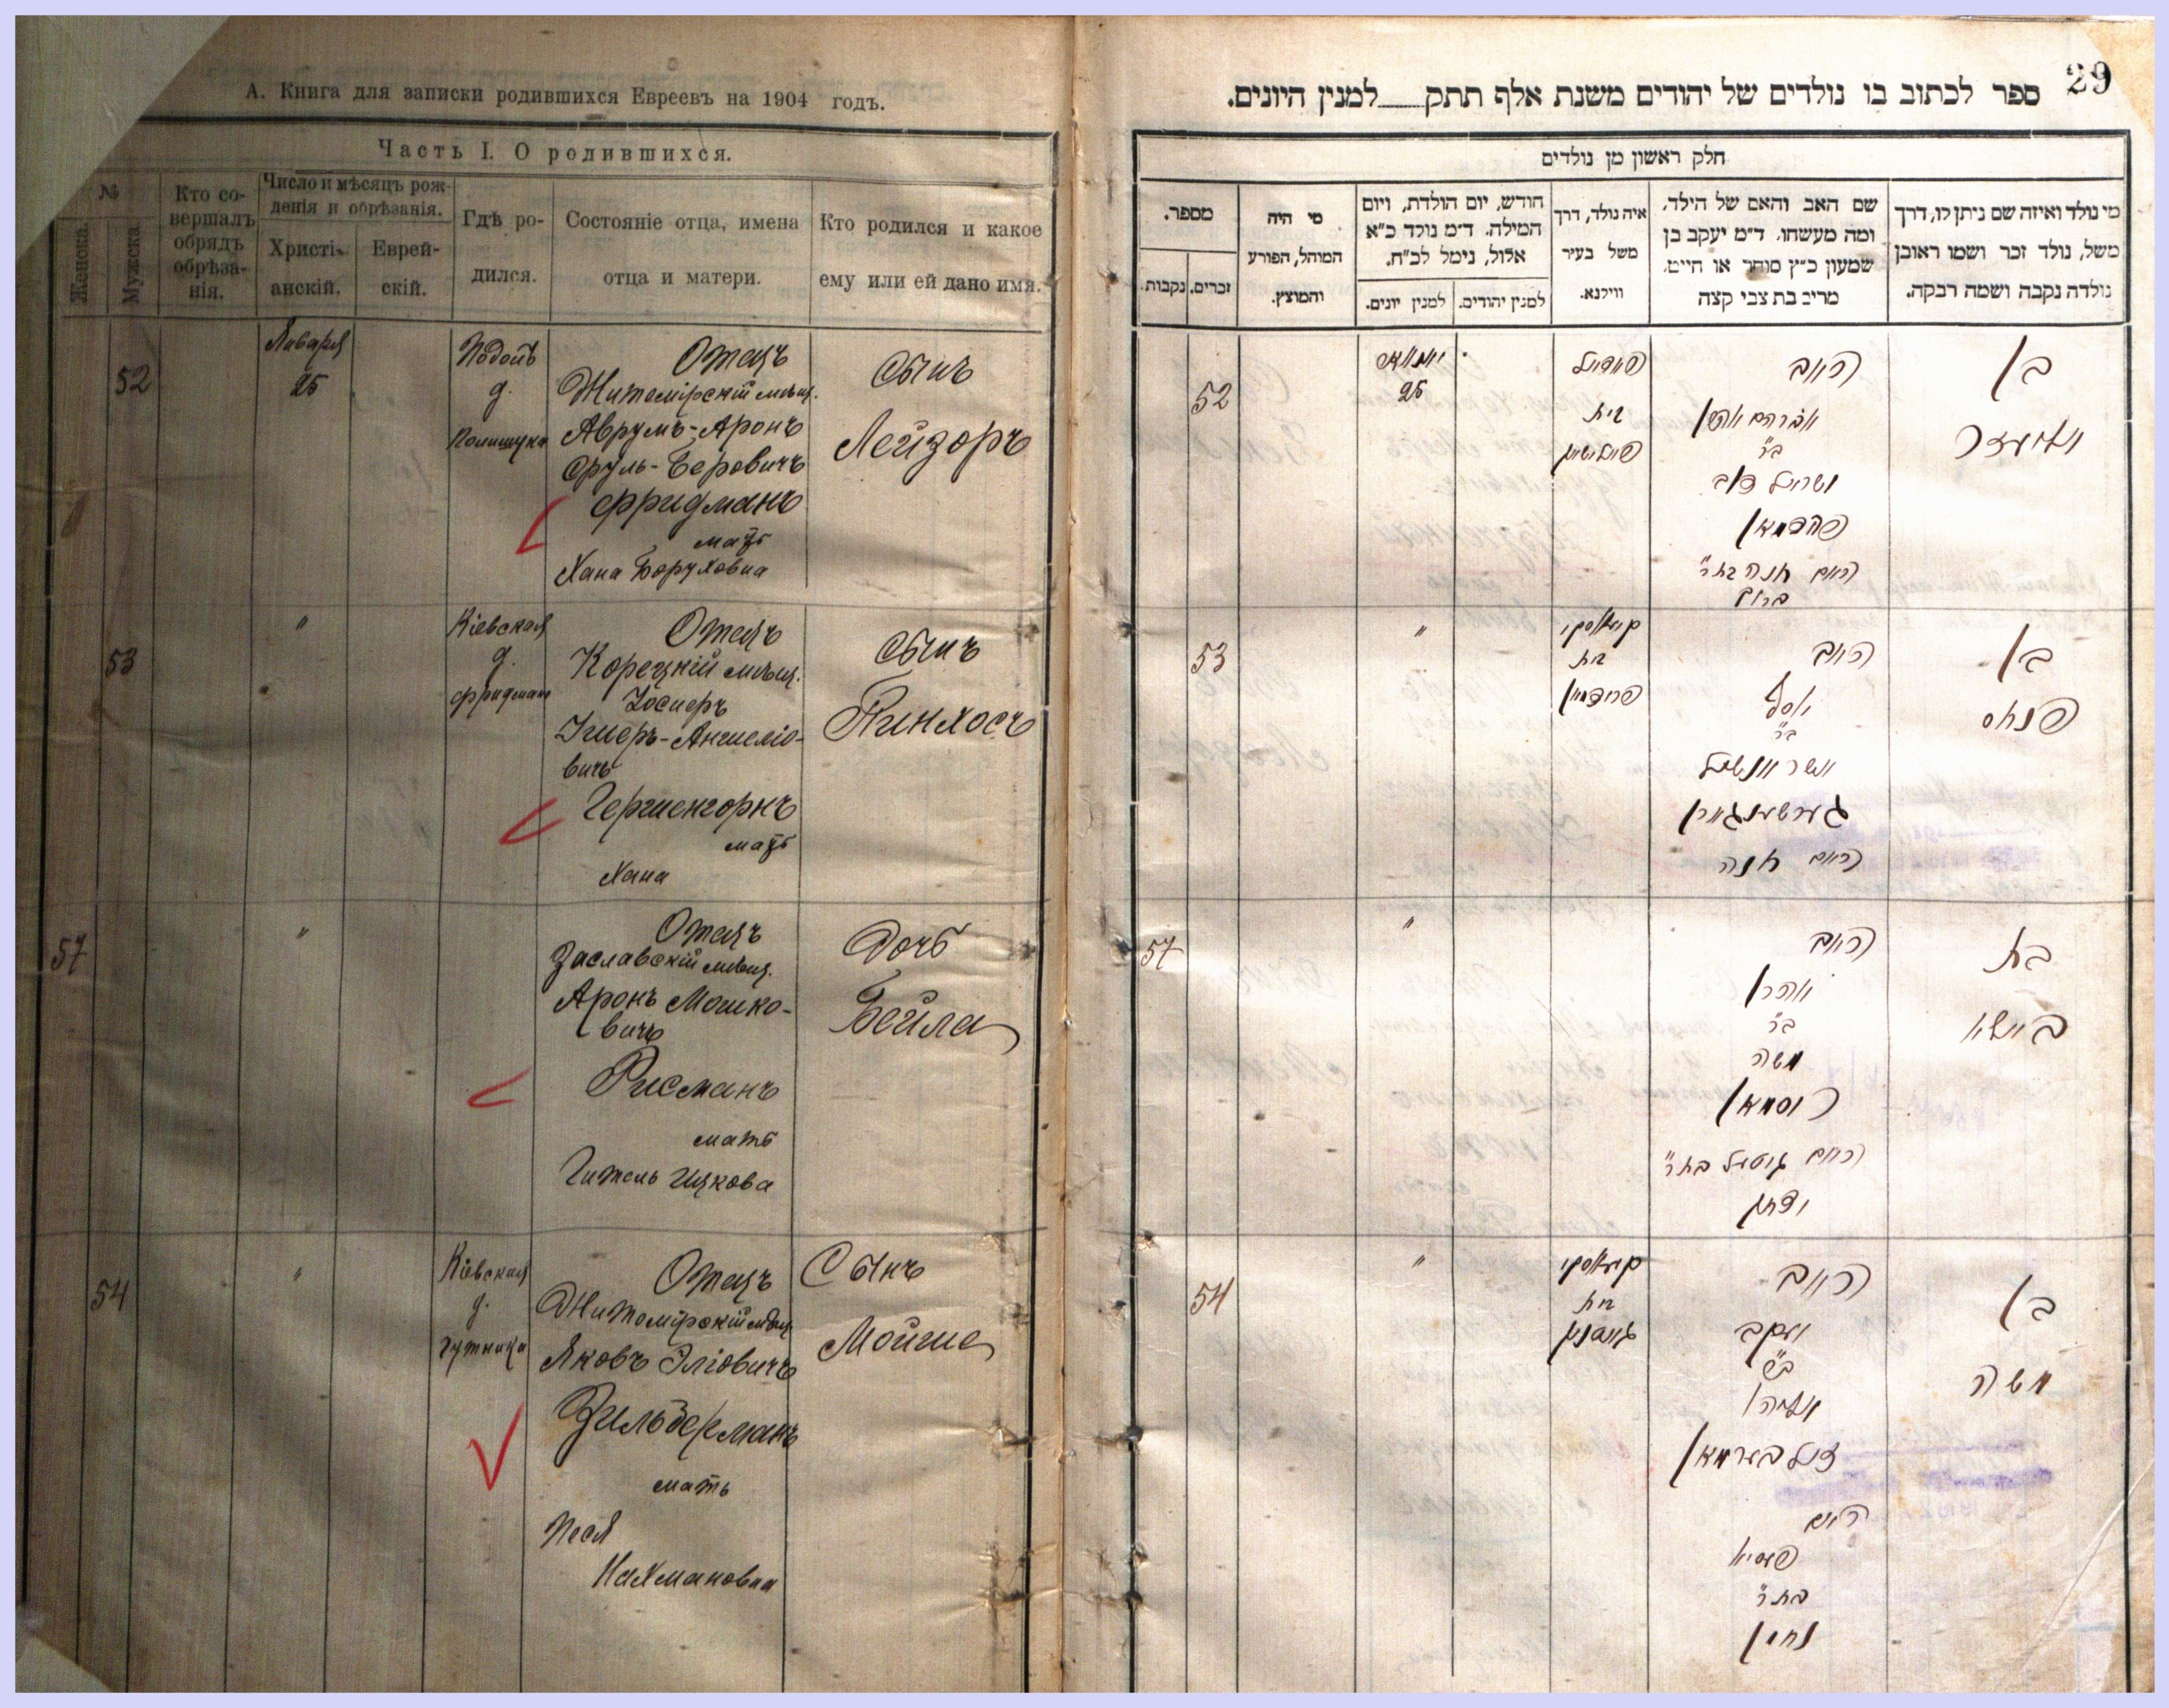 А. Книга для записки родившихся Евреевъ на 1904 годъ.
Часть I. О родившихся.
№
Женска.
Мужска
Кто со-
вершалъ
обрядъ
обрѣза-
нія.
Число и мѣсяцъ рож-
денія и обрѣзанія.
Христі-
анскій.
Еврей-
скій.
Гдѣ ро-
дился.
Состояніе отца, имена
отца и матери.
Кто родился и какое
ему или ей дано имя.
52
Января
25
д.
Полищука
Отецъ
Житомірскій мѣщ.
Аврумъ-Аронъ
Сруль-Беровичъ
Фридманъ
мать
Хана Боруховна
Сынъ
Лейзоръ
53
"
Кіевская
д.
Фридмана
Отецъ
Корецкій мѣщ.
Іосперъ
вичъ
Гершенгорнъ
мать
Хана
Сынъ
Пинхосъ
57
"
Отецъ
Заславскій мѣщ.
Аронъ Мошко-
вичъ
Рисманъ
мать
Гитель Ицкова
Дочь
Бейла
54
"
Кіевская
д.
Гутника
Отецъ
Житомірскій мѣщ.
Яковъ Эліовичъ
Зильберманъ
мать
Песя
Нахмановна
Сынъ
Мойше
29
ספר לכתוב בו נולדים של יהודים משנת אלף תתק למנין היונים.
חלק ראשון מן נולדים
מי נולד ואיזה שם ניתן לו, דרך
משל, נולד זכר ושמו ראובן
נולדה נקבה ושמה רבקה.
שם האב והאם של הילד,
ומה מעשהו. ד״מ יעקב בן
שמעון כ״ץ סוחר או חייט,
מריב בת צבי קצה
איה נולד, דרך
משל בעיר
ווילנא.
חודש, יום הולדת, ויום
המילה. ד״מ נולד כ״א
אלול, נימל לכ״ח.
למנין יהודים.
למנין יונים.
מי היה
המוהל, הפורע
והמוצץ.
מספר.
זכרים.
נקבות.
בן
אליעזר
האב
אברהם אהרן
ב״ר
ישראל דוב
פרידמאן
האם חנה בת ר״
ברוך
פודול
בית
25
52
בן
פנחס
האב
יוסף
ב״ר
אשר אנשיל
גערשענגורן
האם חנה
בית
פרידמאן
"
53
בת
ביילא
האב
אהרן
ב״ר
משה
ריסמאן
האם גיטעל בת ר״
יצחק
"
57
בן
משה
האב
יעקב
ב״ר
אליהו
זילבערמאן
האם
פעסיא
בת ר״
נחמן
בית
"
54